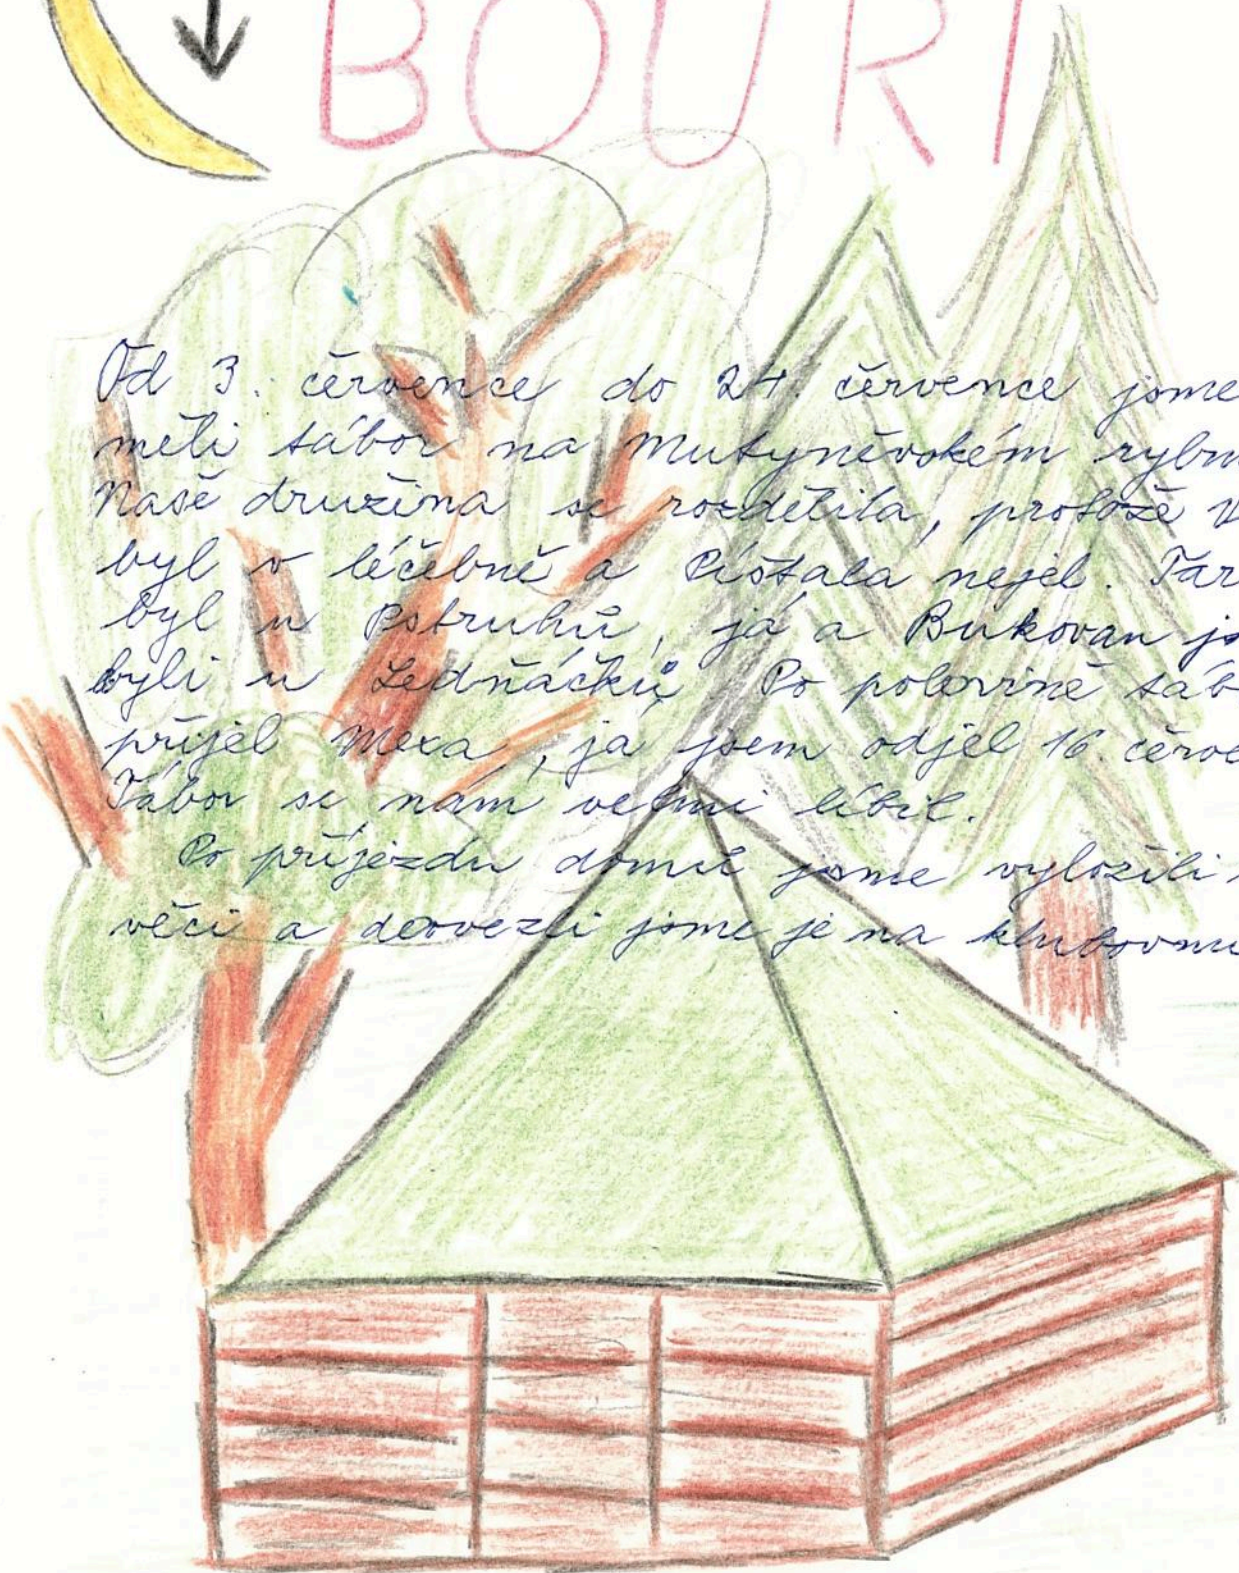 BOUŘI
Od 3. července do 24. července jsme
měli tábor na Mutyněvském rybn
Naše družina se rozdělila, protože V
byl v léčebně a Píšťala nejel. Tar
byl u Pstruhů, já a Bukovan js
byli u Ledňáčků. Po polovině táb
přijel Mexa, já jsem odjel 16. červe
Tábor se nám velmi líbil.
Po příjezdu domů jsme vyložili
věci a dovezli jsme je na klubovnu